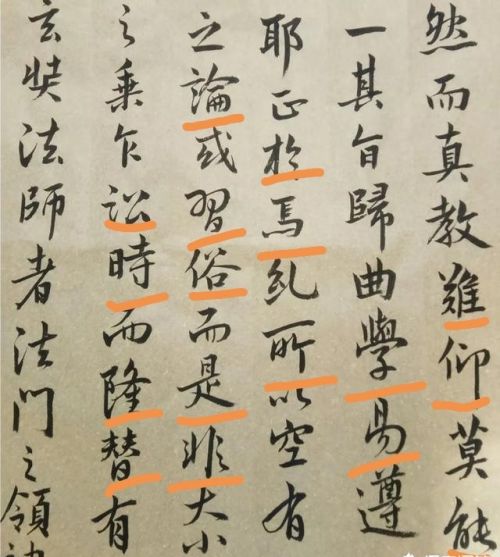 然而真教難仰莫能
一其旨歸曲學易遵
耶正於焉糺所以空有
之論或習俗而是非大小
之乗乍訟時而隆替有
玄奘法師者法門之領